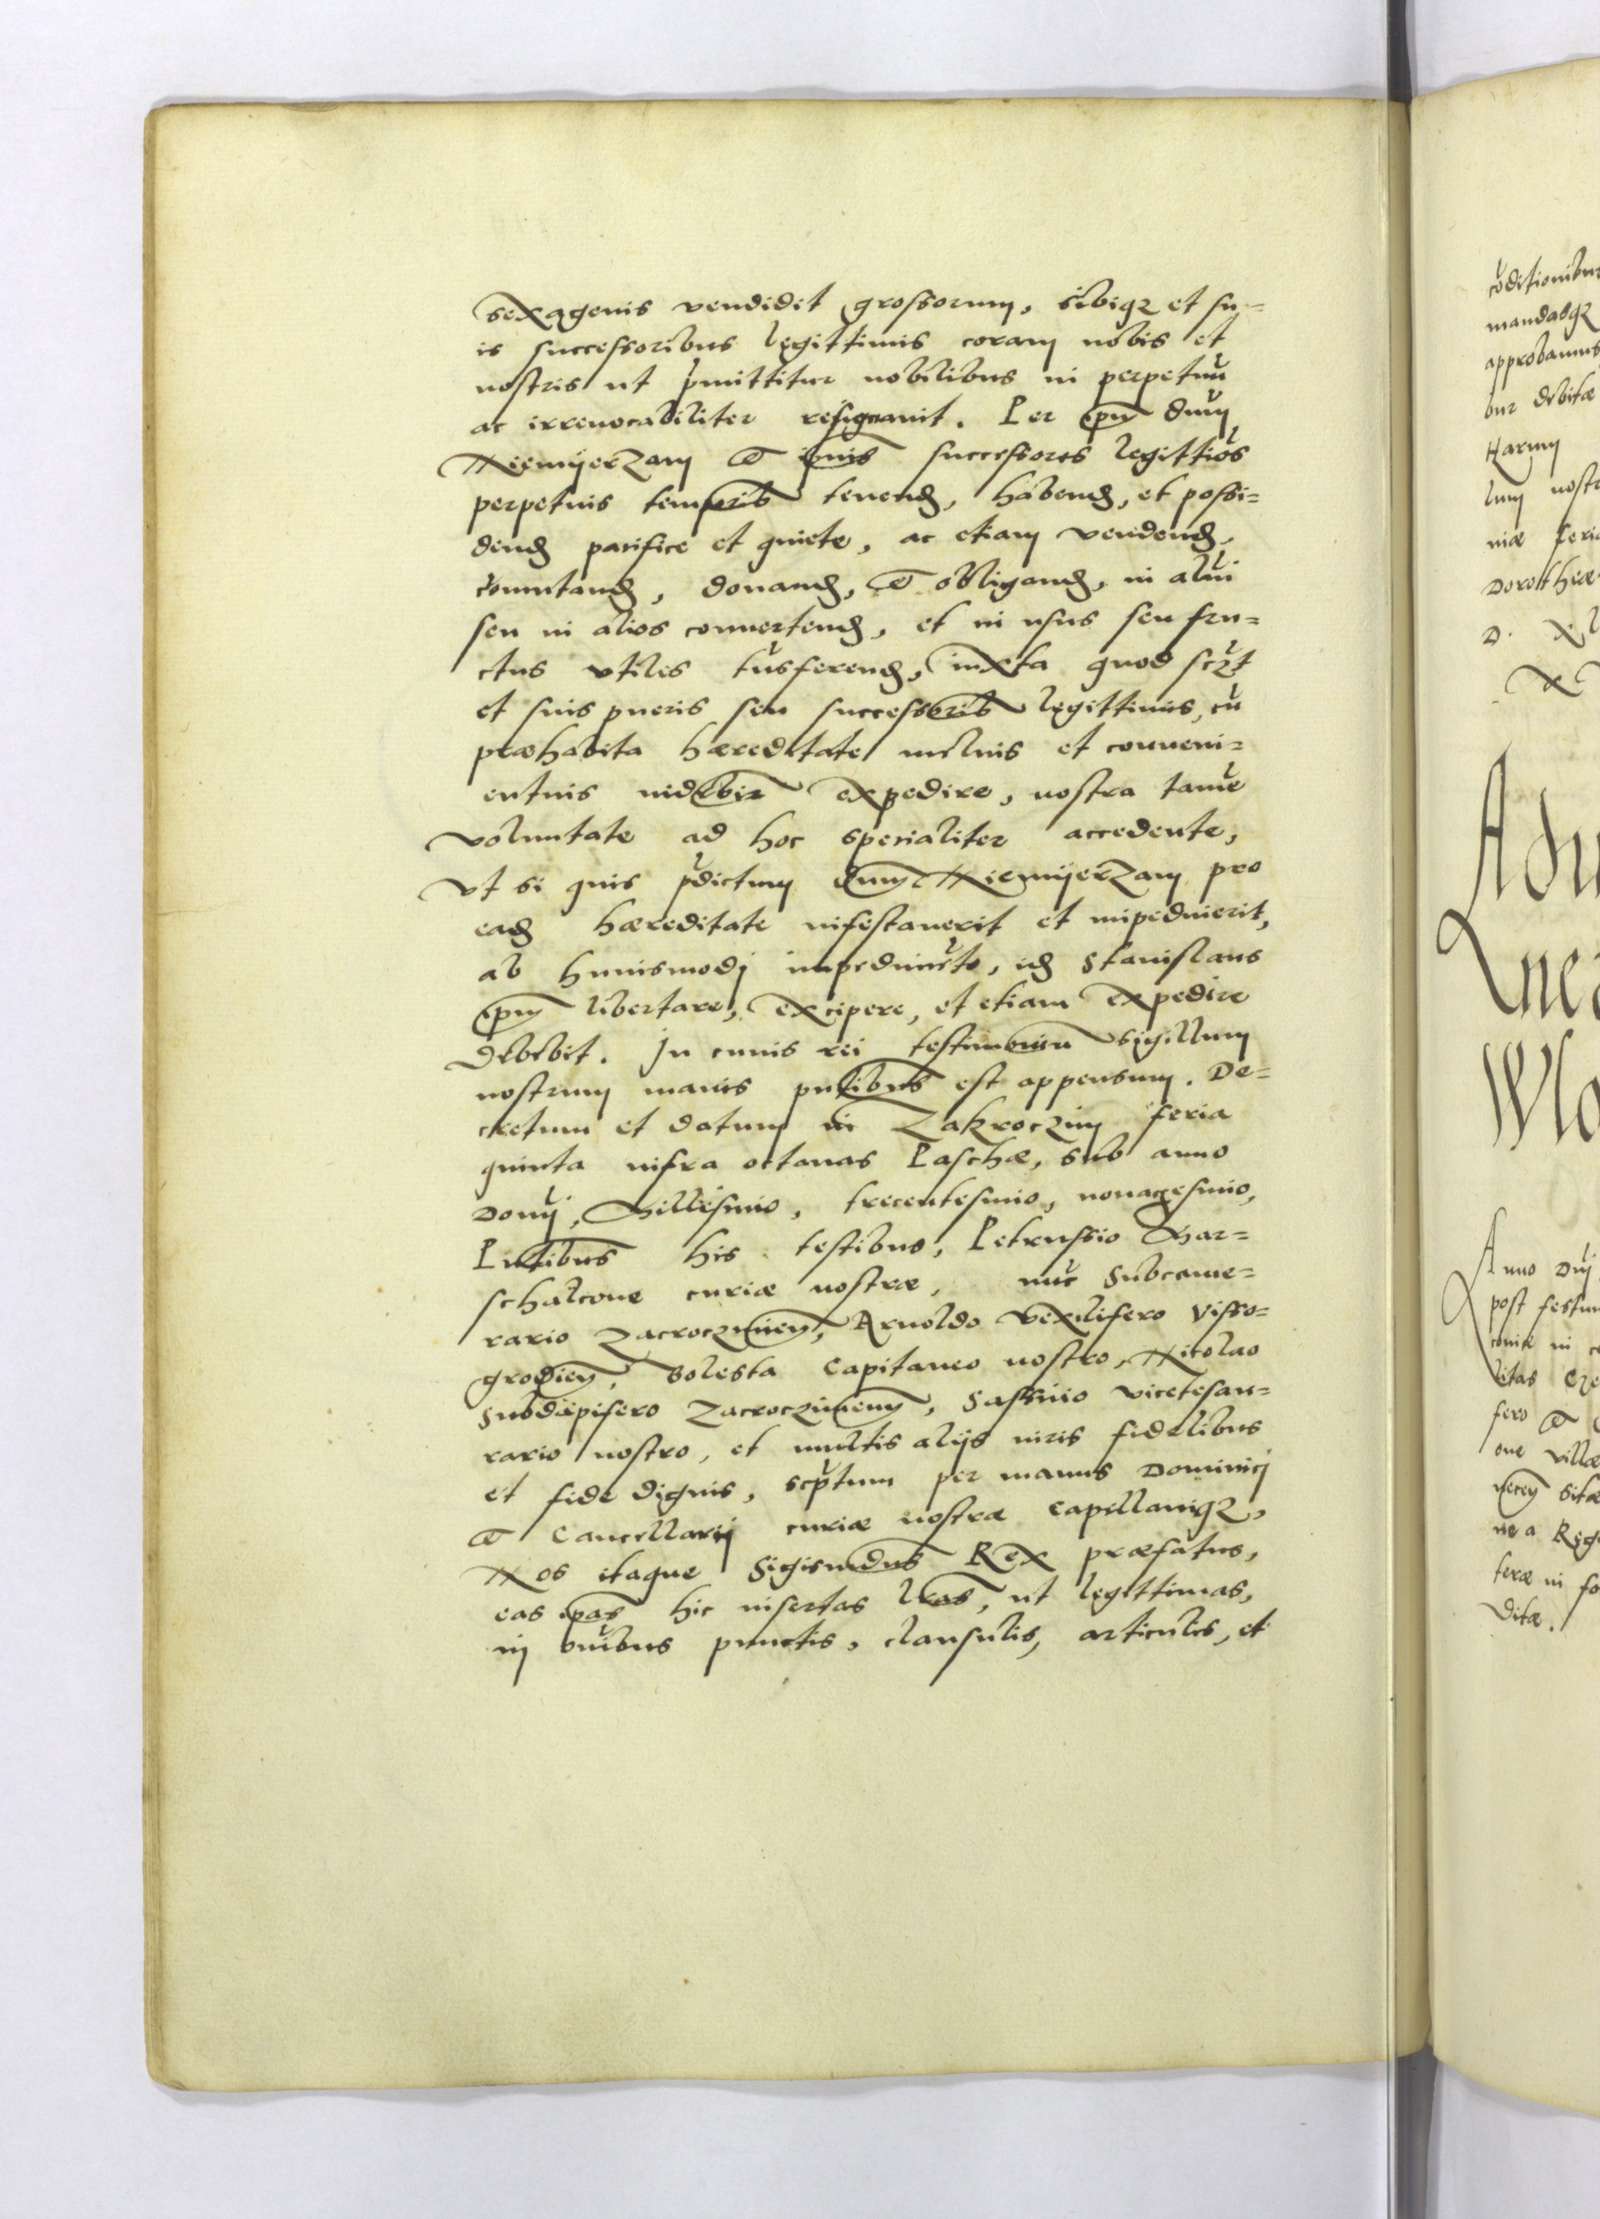 sexagenis vendidit grossorum, sibiqz et su-
is successoribus legittimis coram nobis et
nostris ut pmittitur nobilibus in perpetuū
ac irrevocabiliter resignavit. Per ipm dnum
Niemyerzam et ipius successores legittios
perpetuis temporib tenend, habend, et possi-
dend pacifice et quiete, ac etiam vendend,
comutand, donand, et obligand, in alui
seu in alios convertend, et in usus seu fru-
ctus utiles tūsferend, iuxta quod
et suis pueris seu successorib legittimis, cū
præhabita hæreditate melius et conveni-
entius videbir expedire, nostra tamē
voluntate ad hoc specialiter accedente,
Ut si quis pdictum dnum Niemyerzam pro
ead hæreditate infestaverit et impedierit,
ab huiusmodj impedimēto, id Stanislaus
ipm libertare, excipere, et etiam expedire
debebit. In cuius rei testimoniu sigillum
nostrum maius pntibus est appensum. De-
cretum et datum in Zakroczim feria
quinta infra octavas Paschæ, sub anno
Domj, Millesimo, trecentesimo, nonagesimo,
Pntibus his testibus, Petrussio Mar-
schalcone curiæ nostræ, nuc Subcame-
rario Zacroczimen, Arnoldo vexilifero Visso-
grodien, Bolesta Capitaneo nostro, Nicolao
Subdapifero Zacroczimenn, Sassinio vicetesau-
rario nostro, et multis alijs viris fidelibus
et fide dignis, scptum per manus Dominicj
et Cancellarij curiæ nostræ Capellaniqz,
Nos itaque Sigismdus Rex præfatus,
eas ipas hic insertas lras, ut legittimas,
in omibus punctis, clausulis, articulis, et
cōditionibus
mandasqz
approbamus
bur debitæ
Harum
lum nostr
niæ feria
Dorothiæ
Anno Dnj
post festum